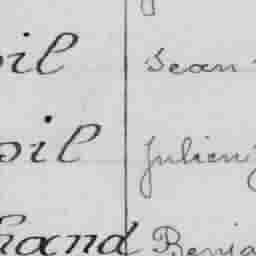 oil Jean
oil Julien
hand Benja